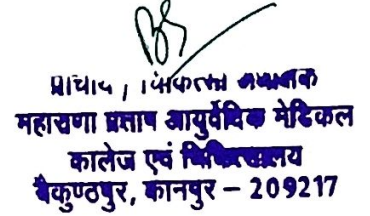 प्राचार्य / चिकित्सा अधीक्षक
महाराणा प्रताप आयुर्वेदिक मेडिकल
कालेज एवं चिकित्सालय
बैकुण्ठपुर, कानपुर – 209217